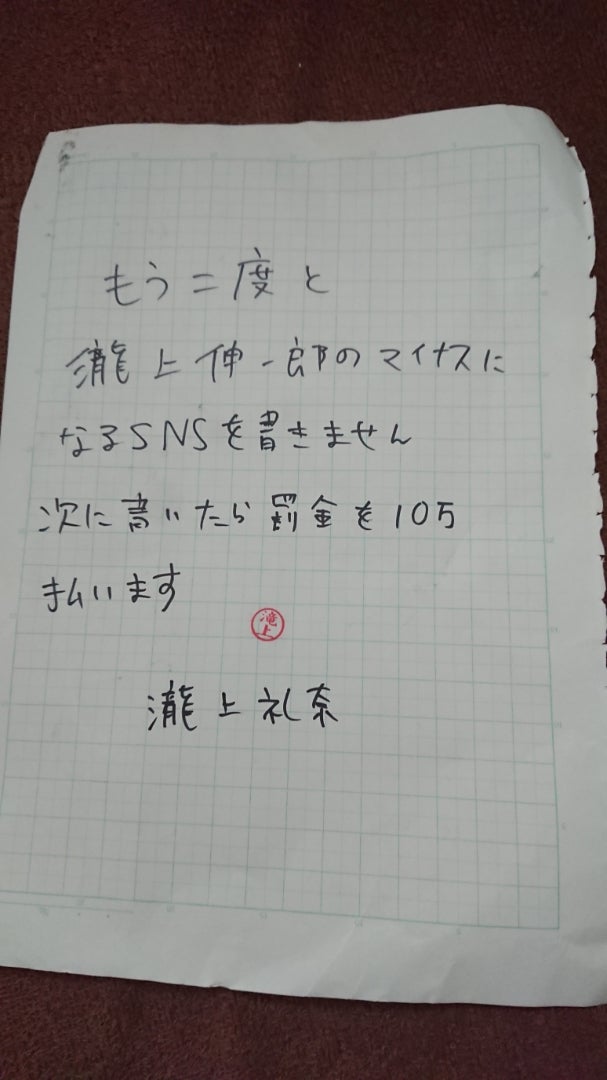 もう二度と
瀧上伸一郎のマイナスに
なるSNSを書きません
次に書いたら罰金を10万
払います
滝上
瀧上礼奈